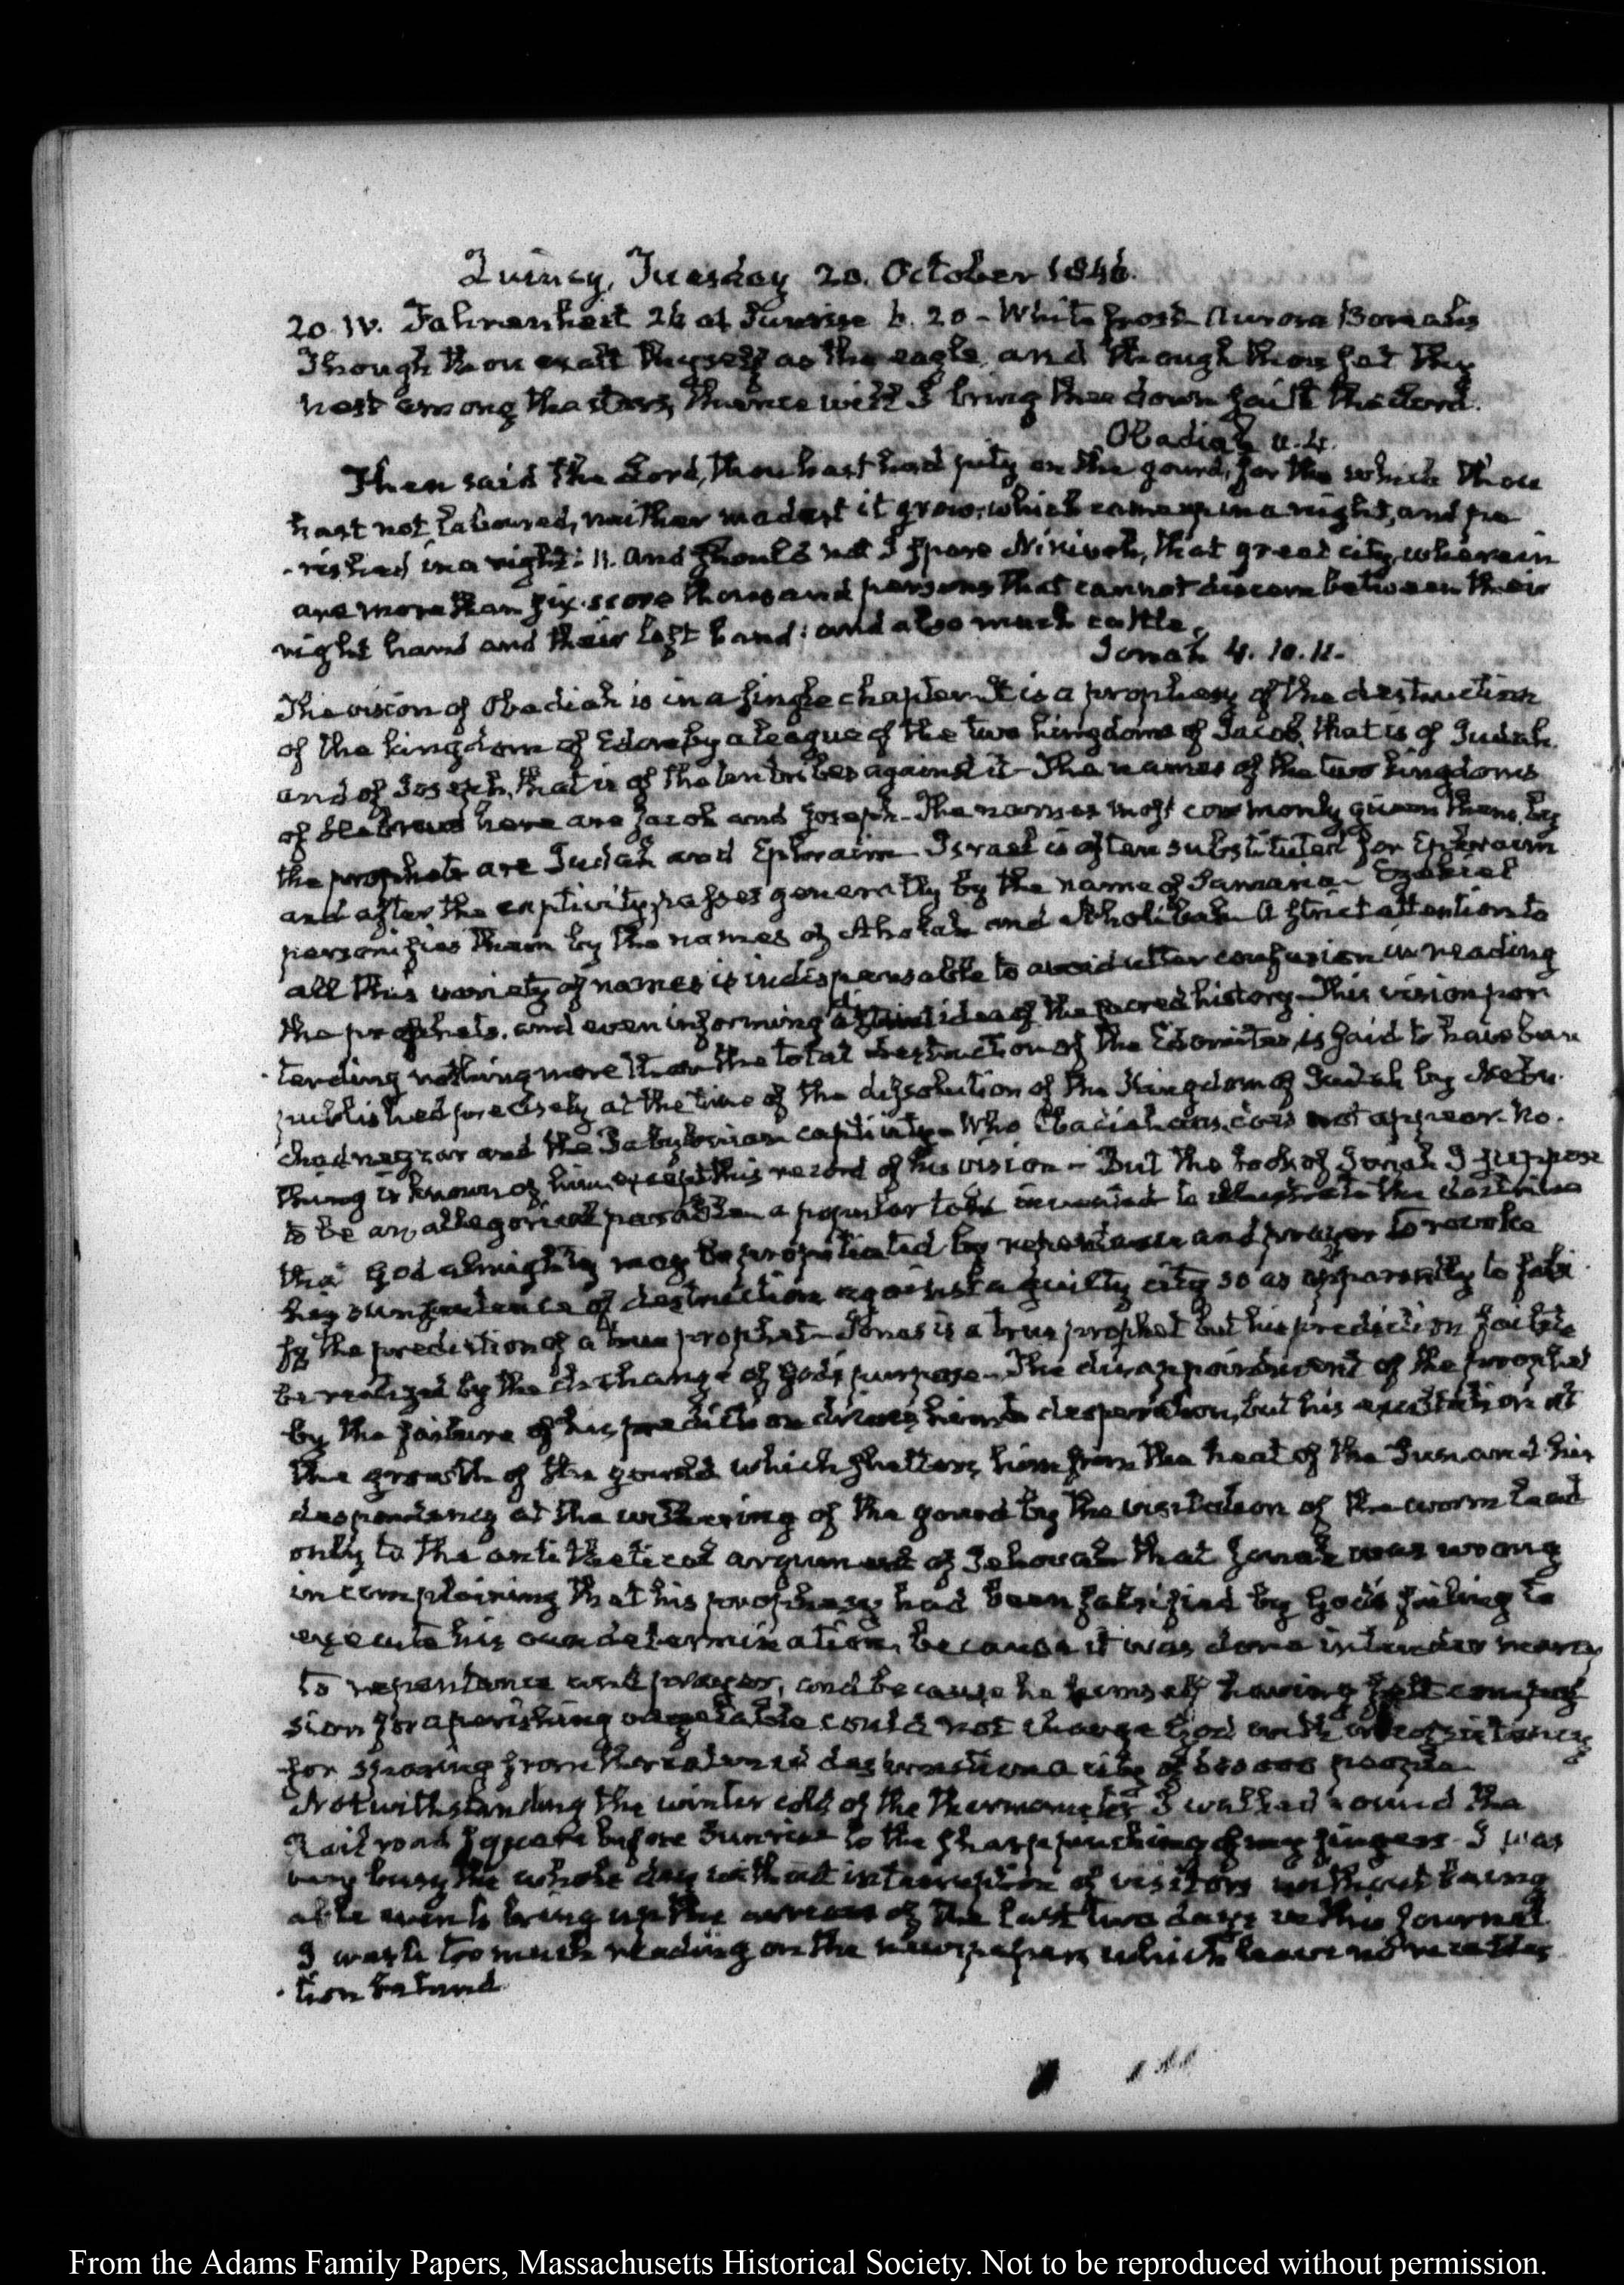 Quincy, Tuesday 20. October 1846.
20. IV. Fahrenheit 26 at Sunrise 6. 20 - White frost Aurora Borealis
Though thou exalt thyself as the eagle, and though thou set thy
nest among the stars, thence will I bring thee down saith the Lord.
Obadiah v. 4.
Then said the Lord, thou hast had pity on the gourd, for the which thou
hast not laboured, neither madest it grow; which came up in a night, and pe
-rished in a night: 11. And should not I spare Niniveh, that great city, wherein
are more than six-score thousand persons that cannot discern between their
right hand and their left hand: and also much cattle.
Jonah 4. 10. 11.
The vision of Obadiah is in a single chapter It is a prophesy of the destruction
of the kingdom of Edom by a league of the two kingdoms of Jacob, that is of Judah.
and of Joseph, that is of the ten tribes against it - The names of the two kingdoms
of Hebrews here are Jacob and Joseph - The names most commonly given them, by
the prophets are Judah and Ephraim - Israel is often substituted for Ephraim
and after the captivity passes generally by the name of Samaria - Ezekiel
personifies them by the names of Aholah and Aholibah - A strict attention to
all this variety of names is indispensable to avoid utter confusion in reading
the prophets, and even in forming a distinct idea of the sacred history - This vision por
-tending nothing more than the total destruction of the Edomites, is said to have been
published precisely at the time of the dissolution of the Kingdom of Judah by Nebu-
chadnezzar and the Babylonian captivity - Who Obadiah was, does not appear. No-
thing is known of him except this record of his vision - But the book of Jonah I suppose
to be an allegorical parable a popular tale invented to illustrate the doctrine
that God almighty may be propitiated by repentance and prayer to revoke
his sentence of destruction against a guilty city so as apparently to falsi-
fy the prediction of a true prophet - Jonas is a true prophet but his prediction fails to
be realized by the change of God's purpose - The disappointment of the prophet
by the failure of his prediction drives him to desperation, but his exultation at
the growth of the gourd which shelters him from the heat of the Sun and his
despondency at the withering of the gourd by the visitation of the worm lead
only to the antithetical argument of Jehovah that Jonah was wrong
in complaining that his prophesy had been falsified by God's failing to
execute his own determination, because it was done in tender mercy
to repentance and prayer, and because he himself having felt compas
sion for a perishing vegetable could not charge God with inconsistency
for sparing from threatened destruction a city of 600 000 people
Notwithstanding the winter cold of the thermometer I walked round the
Railroad square before Sunrise to the sharp pinching of my fingers - I was
very busy the whole day without interruption of visitors without being
able even to bring up the arrears of the last two days in this Journal
I waste too much reading on the newspapers which leave no recollec
-tion behind
From the Adams Family Papers, Massachusetts Historical Society. Not to be reproduced without permission.